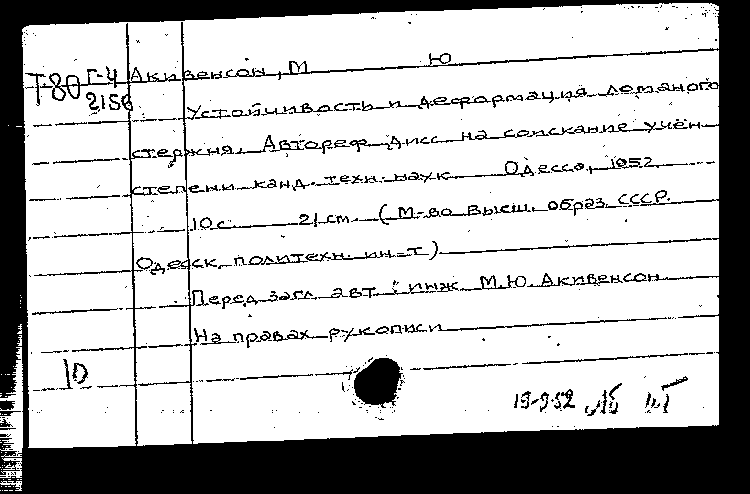 Т-80 Г-4 Акивенсон, М Ю
2156 Устойчивость и деформация ломаного
стержня. Автореф. дисс. на соискание учен
степени канд. техн. наук Одесса, 1952
10 с. 21 см. (М-во высш. образ. СССР.
Одесск. политехн. ин-т)
Перед загл. авт.: инж. М.Ю. Акивенсон
На правах рукописи
10
19-9-52